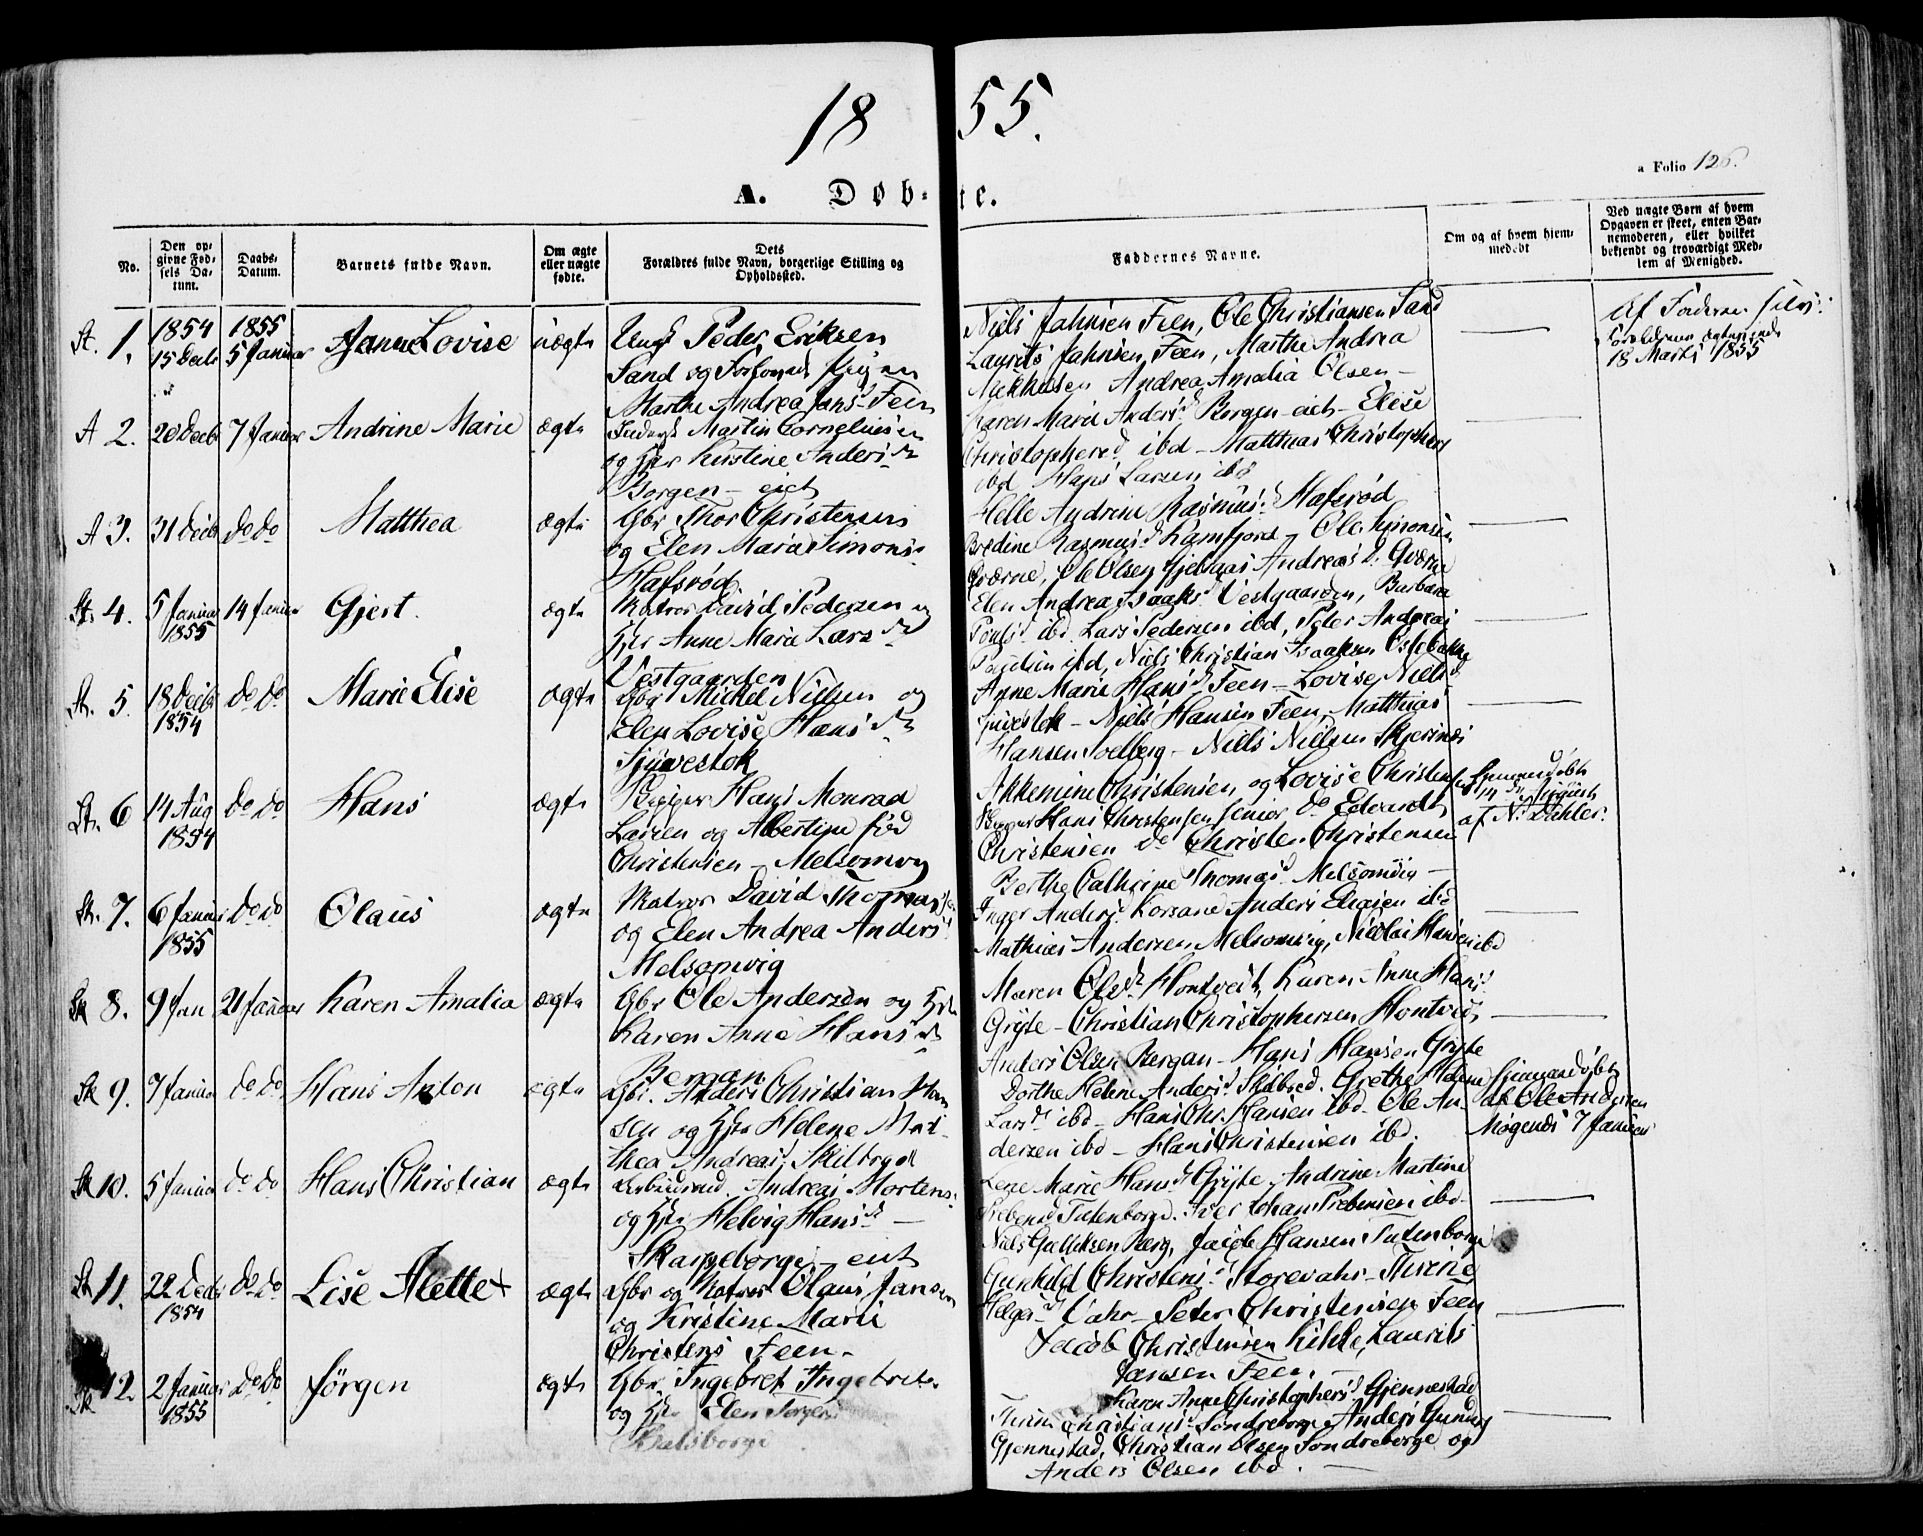 18 55.
a Folio 126.
A. Døb- te.
No.
Den op-
givne Fød-
sels Da-
tum.
Daabs-
Datum.
Barnets fulde Navn.
Om ægte
eller uægte
fødte.
Dets
Forældres fulde Navn, borgerlige Stilling og
Opholdssted.
Faddernes Navne.
Om og af hvem hjem-
medøbt
Ved uægte Børn af hvem
Opgaven er skeet, enten Bar-
nemoderen, eller hvilket
bekjendt og troværdigt Med-
lem af Menighed.
St. 1.
1854
15 Decbr
1855
5 Januar
Jane Lovise
uægte
Ungk Peder Eriksen
Sand og
Marthe Andrea Jans d Feen
Niels Jahnsen Feen, Ole Christiansen Sand
Laurits Jahnsen Feen, Marthe Andrea
Andrea Amalia Olsen
18 Marts 1855
A 2.
20 Decbr
7 Januar
Andrine Marie
ægte
Martin Corneliusen
og Hstr Kirstine Anders d
Borgen - eiet
Karen Marie Anders d Borgen - eiet - Elise
Christophers d ibd - Matthias Christophers
ibd Hans Larsen ibd
A 3.
31 Decbr
do do
Matthea
ægte
Gbr Thor Christensen
og Elen Maria Simons d
Hafsrød
Helle Andrine Rasmus d Hafsrød
Bredine Rasmus d Ramfjord - Ole Simonsen
Qværne, Ole Olsen Gjelstad Andreas O. Qværne
St. 4.
5 Januar
1855
14 Januar
Gjert.
ægte
Matros David Pedersen og
Hstr Anne Maria Lars d
Vestgaarden
Elen Andrea Isaaks d Vestgaarden, Barbara
Pouls d ibd, Lars Pedersen ibd, Peter Andreas
ibd, Niels Christian Isaaksen Ostebakke
St. 5
18 Decbr
1854
do do
Marie Elise
ægte
Gbr Mickel Nilsen og
Elen Lovise Hans d
Anne Marie Hans d Feen - Lovise Niels d
Niels Hansen Feen, Matthias
Hansen Solberg - Niels Nielsen Skjerinæs
St. 6
14 Aug
1854
do do
Hans
ægte
Skipper Hans Monrad
Larsen og Albertine fød
Christensen - Melsomvig
Akkemine Christensen og Lovise Christensen
Skipper Hans Christensen senior do Edvardt
Christensen do Christen Christensen
Hjemmedøbt
14 August
af N. Dahler.
St. 7.
6 Januar
1855
do do
Olaus
ægte
Matros David Thomassen
og Elen Andrea Anders d
Melsomvig
Berthe Cathrine Thomas d Melsomvig -
Inger Anders d Korsane Anders Eliasen ibd
Mathias Andersen Melsomvig, Nicolai Hansen ibd
Sk 8.
9 Jan
21 Januar
Karen Amalia
ægte
Gbr Ole Andersen og Hstr
Karen Anne Hans d
Bergan
Maren Ols d Hontveit, Karen Anne Hans d
Gryte - Christian Christophersen Hontveit,
Anders Olsen Bergan - Hans Hansen Gryte
Sk 9.
7 Januar
do do
Hans Anton
ægte
Gbr. Anders Christian Han
sen og Hstr Helene Mat-
thea Andreas d Skilbred
Dorthe Helene Anders d Skilbred. Grethe Helene
Lars d ibd - Hans Chr. Hansen ibd - Ole An-
dersen ibd - Hans Christensen ibd.
Hjemmedøbt
af Ole Andersen
7 Januar
Sk 10.
5 Januar
do do
Hans Christian
ægte
Andreas Mortens.
og Hstr Helvig Hans d -
Skarpeborge - eiet
Lene Marie Hans d Gryte, Andrine Martine
Prebens d Sutenborge. Iver Johan Prebensen ibd -
Niels Gulliksen Berg, Jacob Hansen Sutenborge
Sk 11.
22 Decbr
1854
do do
Lise Alette
ægte
Gbr og Matros Olaus Jansen
og Kristine Marie
Christens d Feen -
Gunhild Christens d Storevahr - Thrine
Helges d Vahr - Peter Christensen Feen
Jacob Christensen Kihle, Laurits
Jansen Feen -
Sk 12.
2 Januar
1855
do do
Jørgen
ægte
Gbr Ingebret Ingebrets.
og Hstr Elen Jørgens d
Karen Anne Christophers d Gjennestad
Thrine Christians d Søndreborge Anders
Gjennestad, Christian Olsen Søndreborge og
Anders Olsen ibd. -